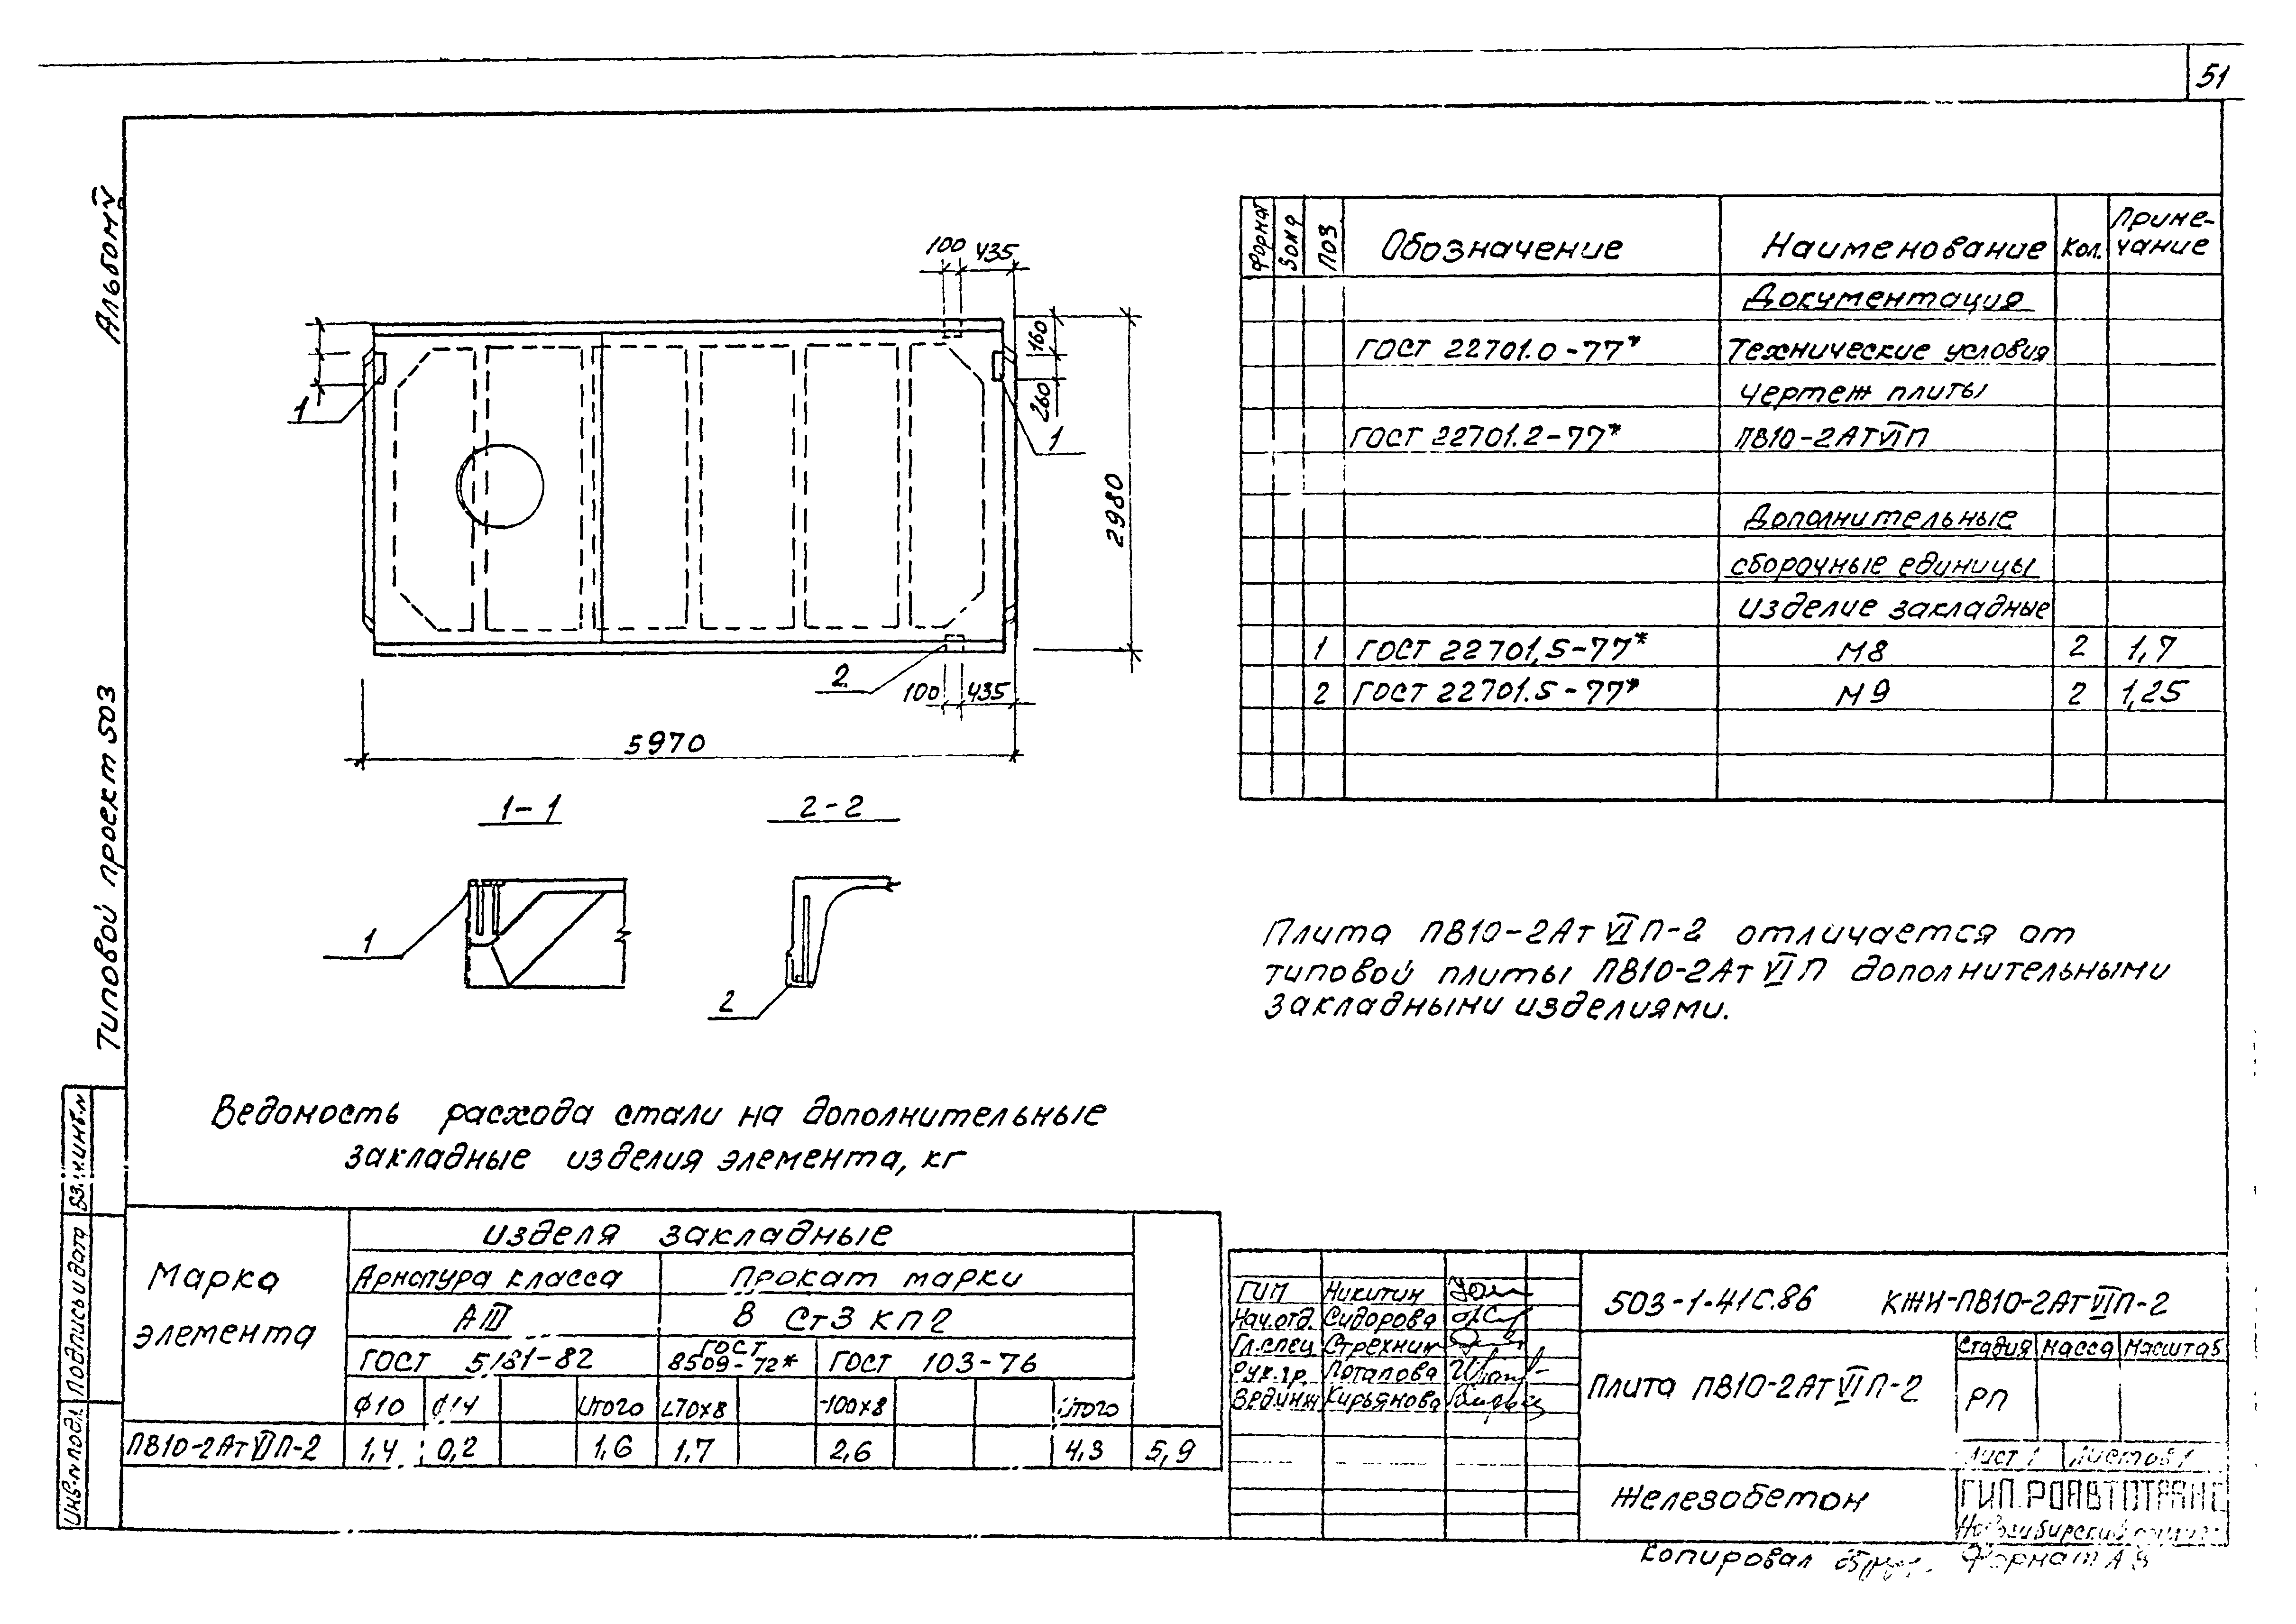 51
Альбом V
Типовой проект 503
100 435
160
260
1
1
2980
2
100 435
5970
1-1
2-2
1
2
Формат Зона Поз. Обозначение Наименование Кол. Приме-
чание
Документация
ГОСТ 22701.0-77* Технические условия
Чертеж плиты
ГОСТ 22701.2-77* ПВ10-2АТVIП
Дополнительные
сборочные единицы
Изделие закладные
1 ГОСТ 22701,5-77* М8 2 1,7
2 ГОСТ 22701.5-77* М9 2 1,25
Плита ПВ10-2АтVIП-2 отличается от
типовой плиты ПВ10-2АтVIП дополнительными
закладными изделиями.
Ведомость расхода стали на дополнительные
закладные изделия элемента, кг
Марка
элемента
Изделя закладные
Арматура класса Прокат марки
АIII В Ст3 КП2
ГОСТ 5781-82 ГОСТ 8509-72* ГОСТ 103-76
Ф10 Ф14 Итого L70х8 -100х8 Итого
ПВ10-2АтVIП-2 1,4 0,2 1,6 1,7 2,6 4,3 5,9
Инв.№подл. Подпись и дата Вз.инв.№
ГИП Никитин
Нач.отд. Сидорова
Гл.спец Стрехнин
Рук.гр. Потапова
Вед.инж Кирьянова
503-1-41С.86 КЖИ-ПВ10-2АтVIП-2
Плита ПВ10-2АтVIП-2
Стадия Масса Масштаб
РП
Лист 1 Листов 1
Железобетон
ГИПРОАВТОТРАНС
Новосибирский
Копировал Формат А3